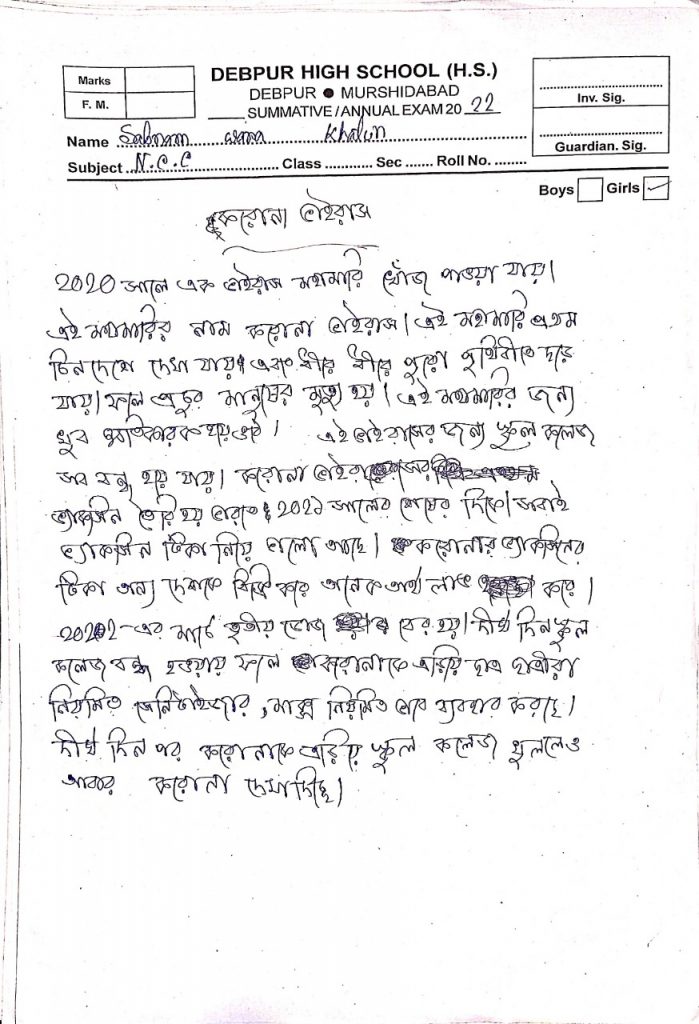 Marks
F. M.
DEBPUR HIGH SCHOOL (H.S.)
DEBPUR ● MURSHIDABAD
SUMMATIVE/ANNUAL EXAM 2022
Inv. Sig.
Guardian. Sig.
Name Khatun
Subject N.C.C Class Sec Roll No.
Boys Girls ✓
করোনা ভাইরাস
2020 সালে এক ভাইরাস মহামারি খোঁজ পাওয়া যায়।
এই মহামারির নাম করোনা ভাইরাস। এই মহামারি প্রথম
চিনদেশে দেখা যায়। এবং ধীরে ধীরে পুরো পৃথিবীতে ছড়ে
যায়। ফলে প্রচুর মানুষের মৃত্যু হয়। এই মহামারির জন্য
খুব ক্ষতিকারক হয়ে ওঠে। এই ভাইরাসের জন্য স্কুল কলেজ
সব বন্ধ হয়ে যায়। করোনা
ভ্যাকসিন তৈরি হয় ভারতে 2021 সালের শেষের দিকে। সবাই
ভ্যাকসিন টিকা নিয়ে ভালো আছে। করোনার ভ্যাকসিনের
টিকা অন্য দেশকে বিক্রি করে অনেক অর্থ লাভ করে।
2022-এর মার্চে তৃতীয় ডোজ বের হয়। দীর্ঘ দিন স্কুল
কলেজ বন্ধ হওয়ায় ফলে করোনাকে এড়িয়ে ছাত্র ছাত্রীরা
নিয়মিত সেনিটাইজার, মাক্স নিয়মিত ভাবে ব্যবহার করছে।
দীর্ঘ দিন পর করোনাকে এড়িয়ে স্কুল কলেজ খুললেও
আবার করোনা দেখা দিচ্ছে।